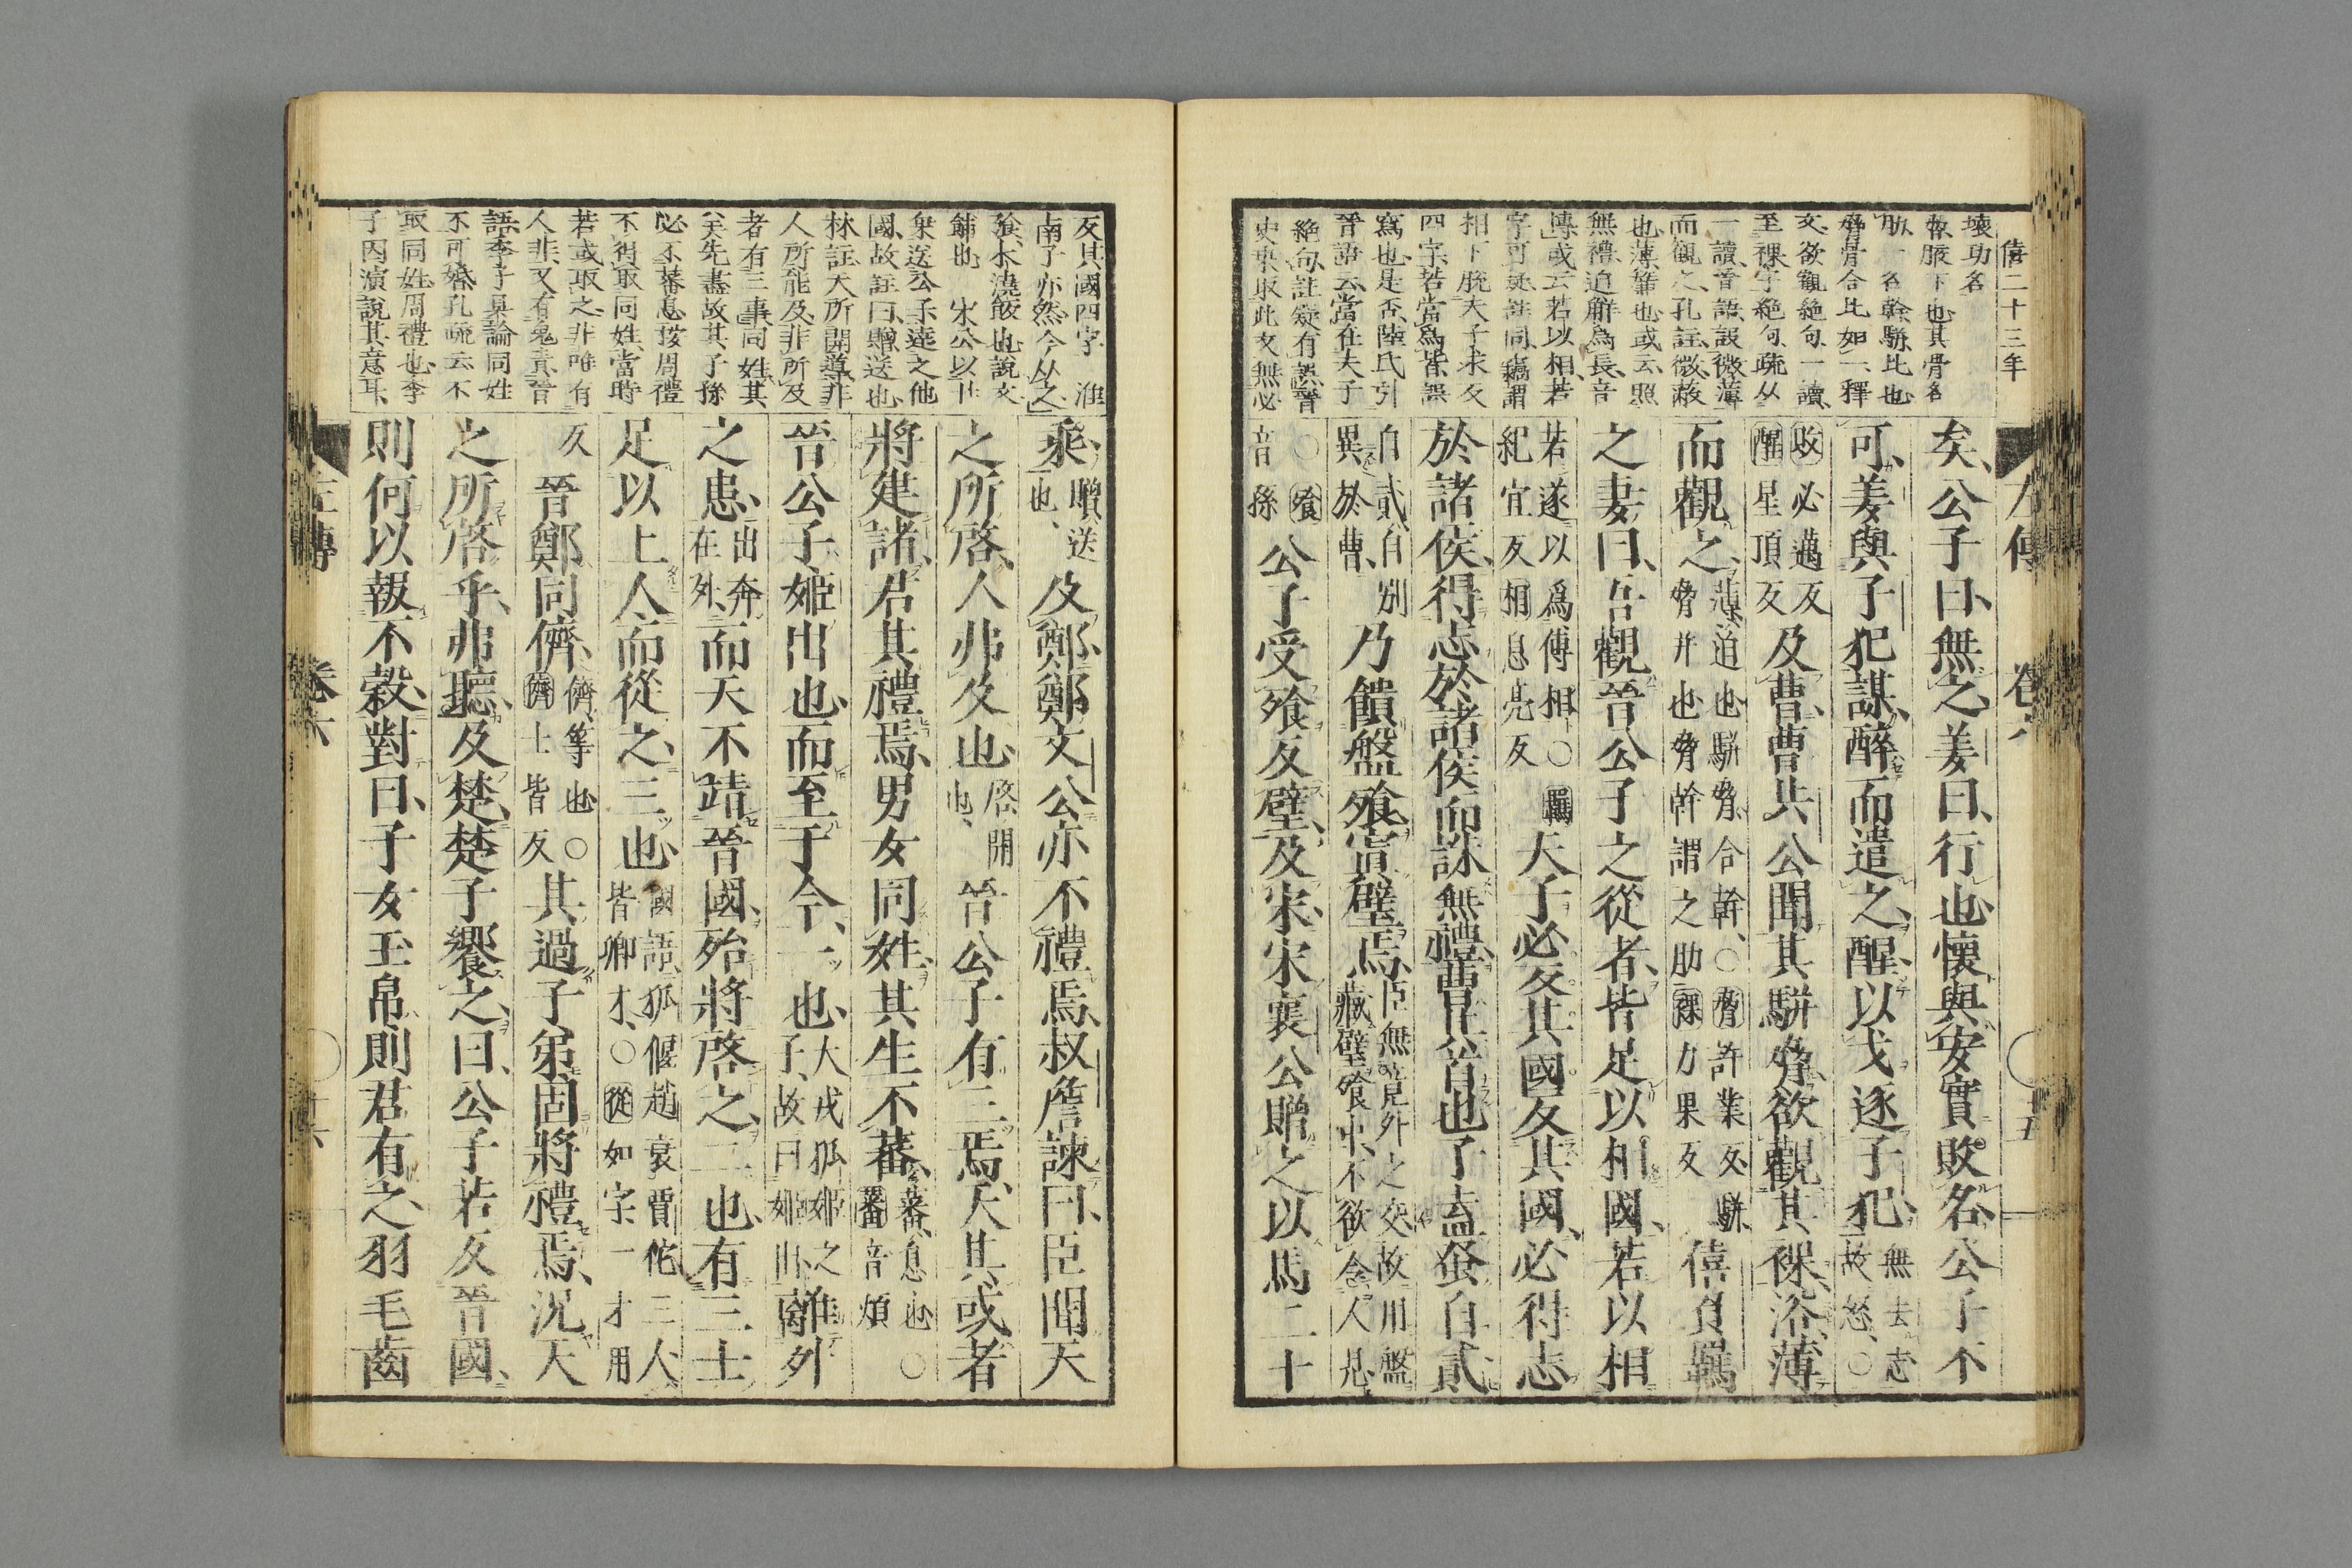 僖二十三年
壞功名
敬腋下也其骨名
肋一名幹騈比也
脅骨合比如一釋
文欲觀絕句一讀
至裸字絕句疏从
一讀晉語設微薄
而觀之孔註微蔽
也薄簾也或云照
無禮追觧為長音
傳或云若以相若
字可疑註同竊謂
相下脫夫子未反
四字若當爲皆誤
寫也是否陸氏引
晉語云當在夫子
絕句註疑有誤晉
史宋取此文無必
左傳 卷六 五
矣公子曰無之姜曰行也懷與安實敗名公子不
可姜與子犯謀醉而遣之醒以戈逐子犯
無去志
故怒○
敗必邁反
醒星頂反
及曹曹共公聞其駢脅欲觀其裸浴薄
而觀之
薄迫也駢脅合幹○脅許業反駢
脅并也脅幹謂之肋裸力果反
僖負羈
之妻曰吾觀晉公子之從者皆足以相國若以相
若遂以爲傅相○羈
紀宜反相息亮反
夫子必反其國反其國必得志
於諸侯得志於諸侯而誅無禮曹其首也子盍蚤自貳
自貳自別
異於曹
乃饋盤飧寘璧焉
臣無竟外之交故用盤
藏璧飧中不欲令人見
○飧
音孫
公子受飧反璧及宋宋襄公贈之以馬二十
反其國四字 淮
南子亦然今从之
飧水澆飯也說文
餔也 宋公以廿
乘送公子達之他
國故註曰贈送也
林註天所開導非
人所能及非所及
者有三事同姓其
美先盡故其子孫
必不蕃息按周禮
不得取同姓當時
若或取之非唯有
人非又有鬼責晉
語季子具論同姓
不可婚孔疏云不
取同姓周禮也季
子因演說其意耳
乘
贈送
也
及鄭鄭文公亦不禮焉叔詹諫曰臣聞天
之所啓人弗及也
啓開
也
晉公子有三焉天其或者
將建諸君其禮焉男女同姓其生不蕃
蕃息也○
蕃音煩
晉公子姬出也而至于今一也
大戎狐姬之
子故曰姬出
離外
之患
出奔
在外
而天不靖晉國殆將啓之二也有三士
足以上人而從之三也
國語狐偃趙衰賈佗三人
皆卿才○從如字一才用
反
晉鄭同儕
儕等也○
儕士皆反
其過子弟固將禮焉況天
之所啓乎弗聽及楚楚子饗之曰公子若反晉國
則何以報不穀對曰子女玉帛則君有之羽毛齒
左傳 卷六 十六